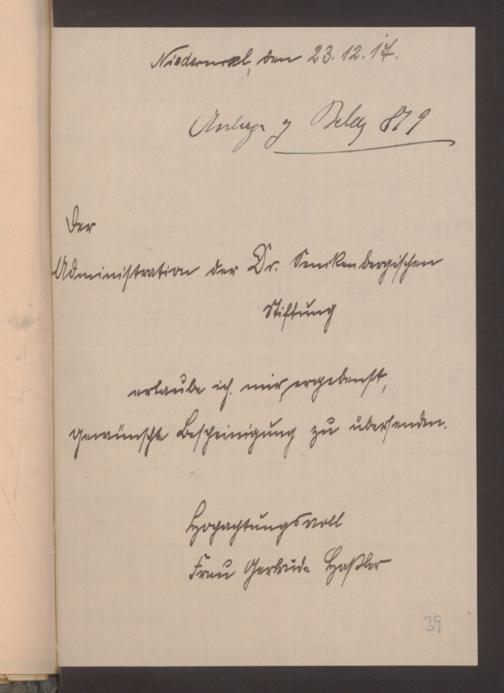 Niederursel, den 23.12.17.
Anlage z Beleg 879
Der
Administration der Dr. Senckenbergischen
Stiftung
erlaube ich mir, ergebenst,
gewünschte Bescheinigung zu übersenden.
Hochachtungsvoll
Frau Gertrude Haßler
39